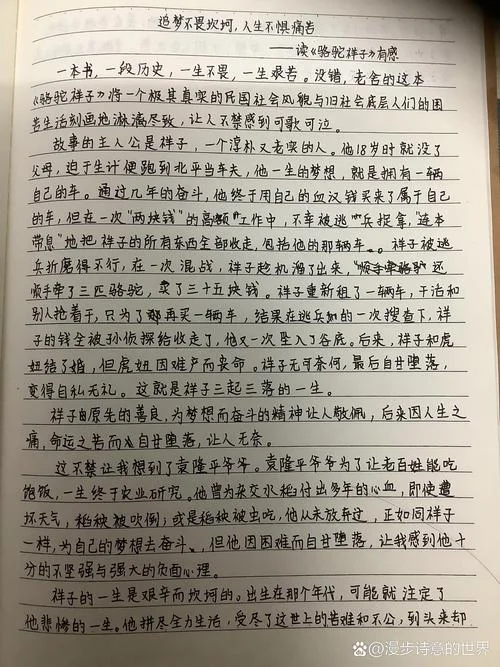 追梦不畏坎坷,人生不惧痛苦
——读《骆驼祥子》有感
一本书,一段历史,一生不畏,一生艰苦。没错,老舍的这本
《骆驼祥子》将一个极其真实的民国社会风貌与旧社会底层人们的困
苦生活刻画地淋漓尽致,让人不禁感到可歌可泣。
故事的主人公是祥子,一个淳朴又老实的人。他18岁时就没了
父母,迫于生计便跑到北平当车夫,他一生的梦想,就是拥有一辆
自己的车。通过几年的奋斗,他终于用自己的血汉钱买来了属于自己
的车,但在一次"两块钱"的高额工作中,不幸被逃兵捉拿,"连本
带息"地把祥子的所有东西全部收走,包括他的那辆车。祥子被逃
兵折磨得不行,在一次混战,祥子趁机溜了出来,还
顺手牵了三匹骆驼,卖了三十五块钱。祥子重新租了一辆车,干活和
别人抢着干,只为了再买一辆车,结果在逃兵的一次搜查下,祥
子的钱全被孙侦探给收走了,他又一次坠入了谷底。后来,祥子和虎
妞结了婚,但虎妞因难产而丧命。祥子无可奈何,最后自甘堕落,
变得自私无礼。这就是祥子三起三落的一生。
祥子原先的善良,为梦想而奋斗的精神让人敬佩,后来因人生之
痛,命运之苦而自甘堕落,让人无奈。
这不禁让我想到了袁隆平爷爷。袁隆平爷爷为了让老百姓能吃
饱饭,一生终于农业研究。他曾为杂交水稻付出多年的心血,即使遭
坏天气,稻秧被吹倒;或是稻秧被虫吃,他从未放弃过,正如同祥子
一样,为自己的梦想去奋斗,但他因困难而自甘堕落,让我感到他十
分的不坚强与强大的负面心理。
祥子的一生是艰辛而坎坷的。出生在那个年代,可能就注定了
他悲惨的一生。他拼尽全力生活,受尽了这世上的苦难和不公,到头来却
@漫步诗意的世界